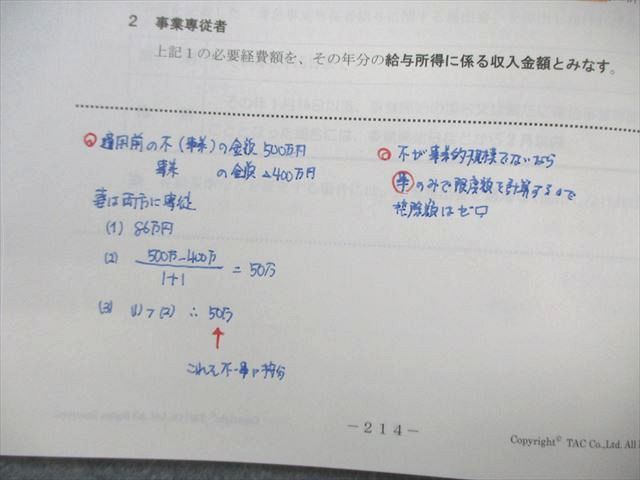 2 事業専従者
上記1の必要経費額を、その年分の給与所得に係る収入金額とみなす。
適用前の不(事業)の金額 500万円
事業 の金額 △400万円
妻は両方に専従
(1) 86万円
(2) 500万-400万 / 1+1 = 50万
(3) (1) > (2) ∴ 50万
これを不・事に按分
不が事業的規模でないなら
事のみで限度額を計算するので
控除額はゼロ
-214-
Copyright© TAC Co.,Ltd. All